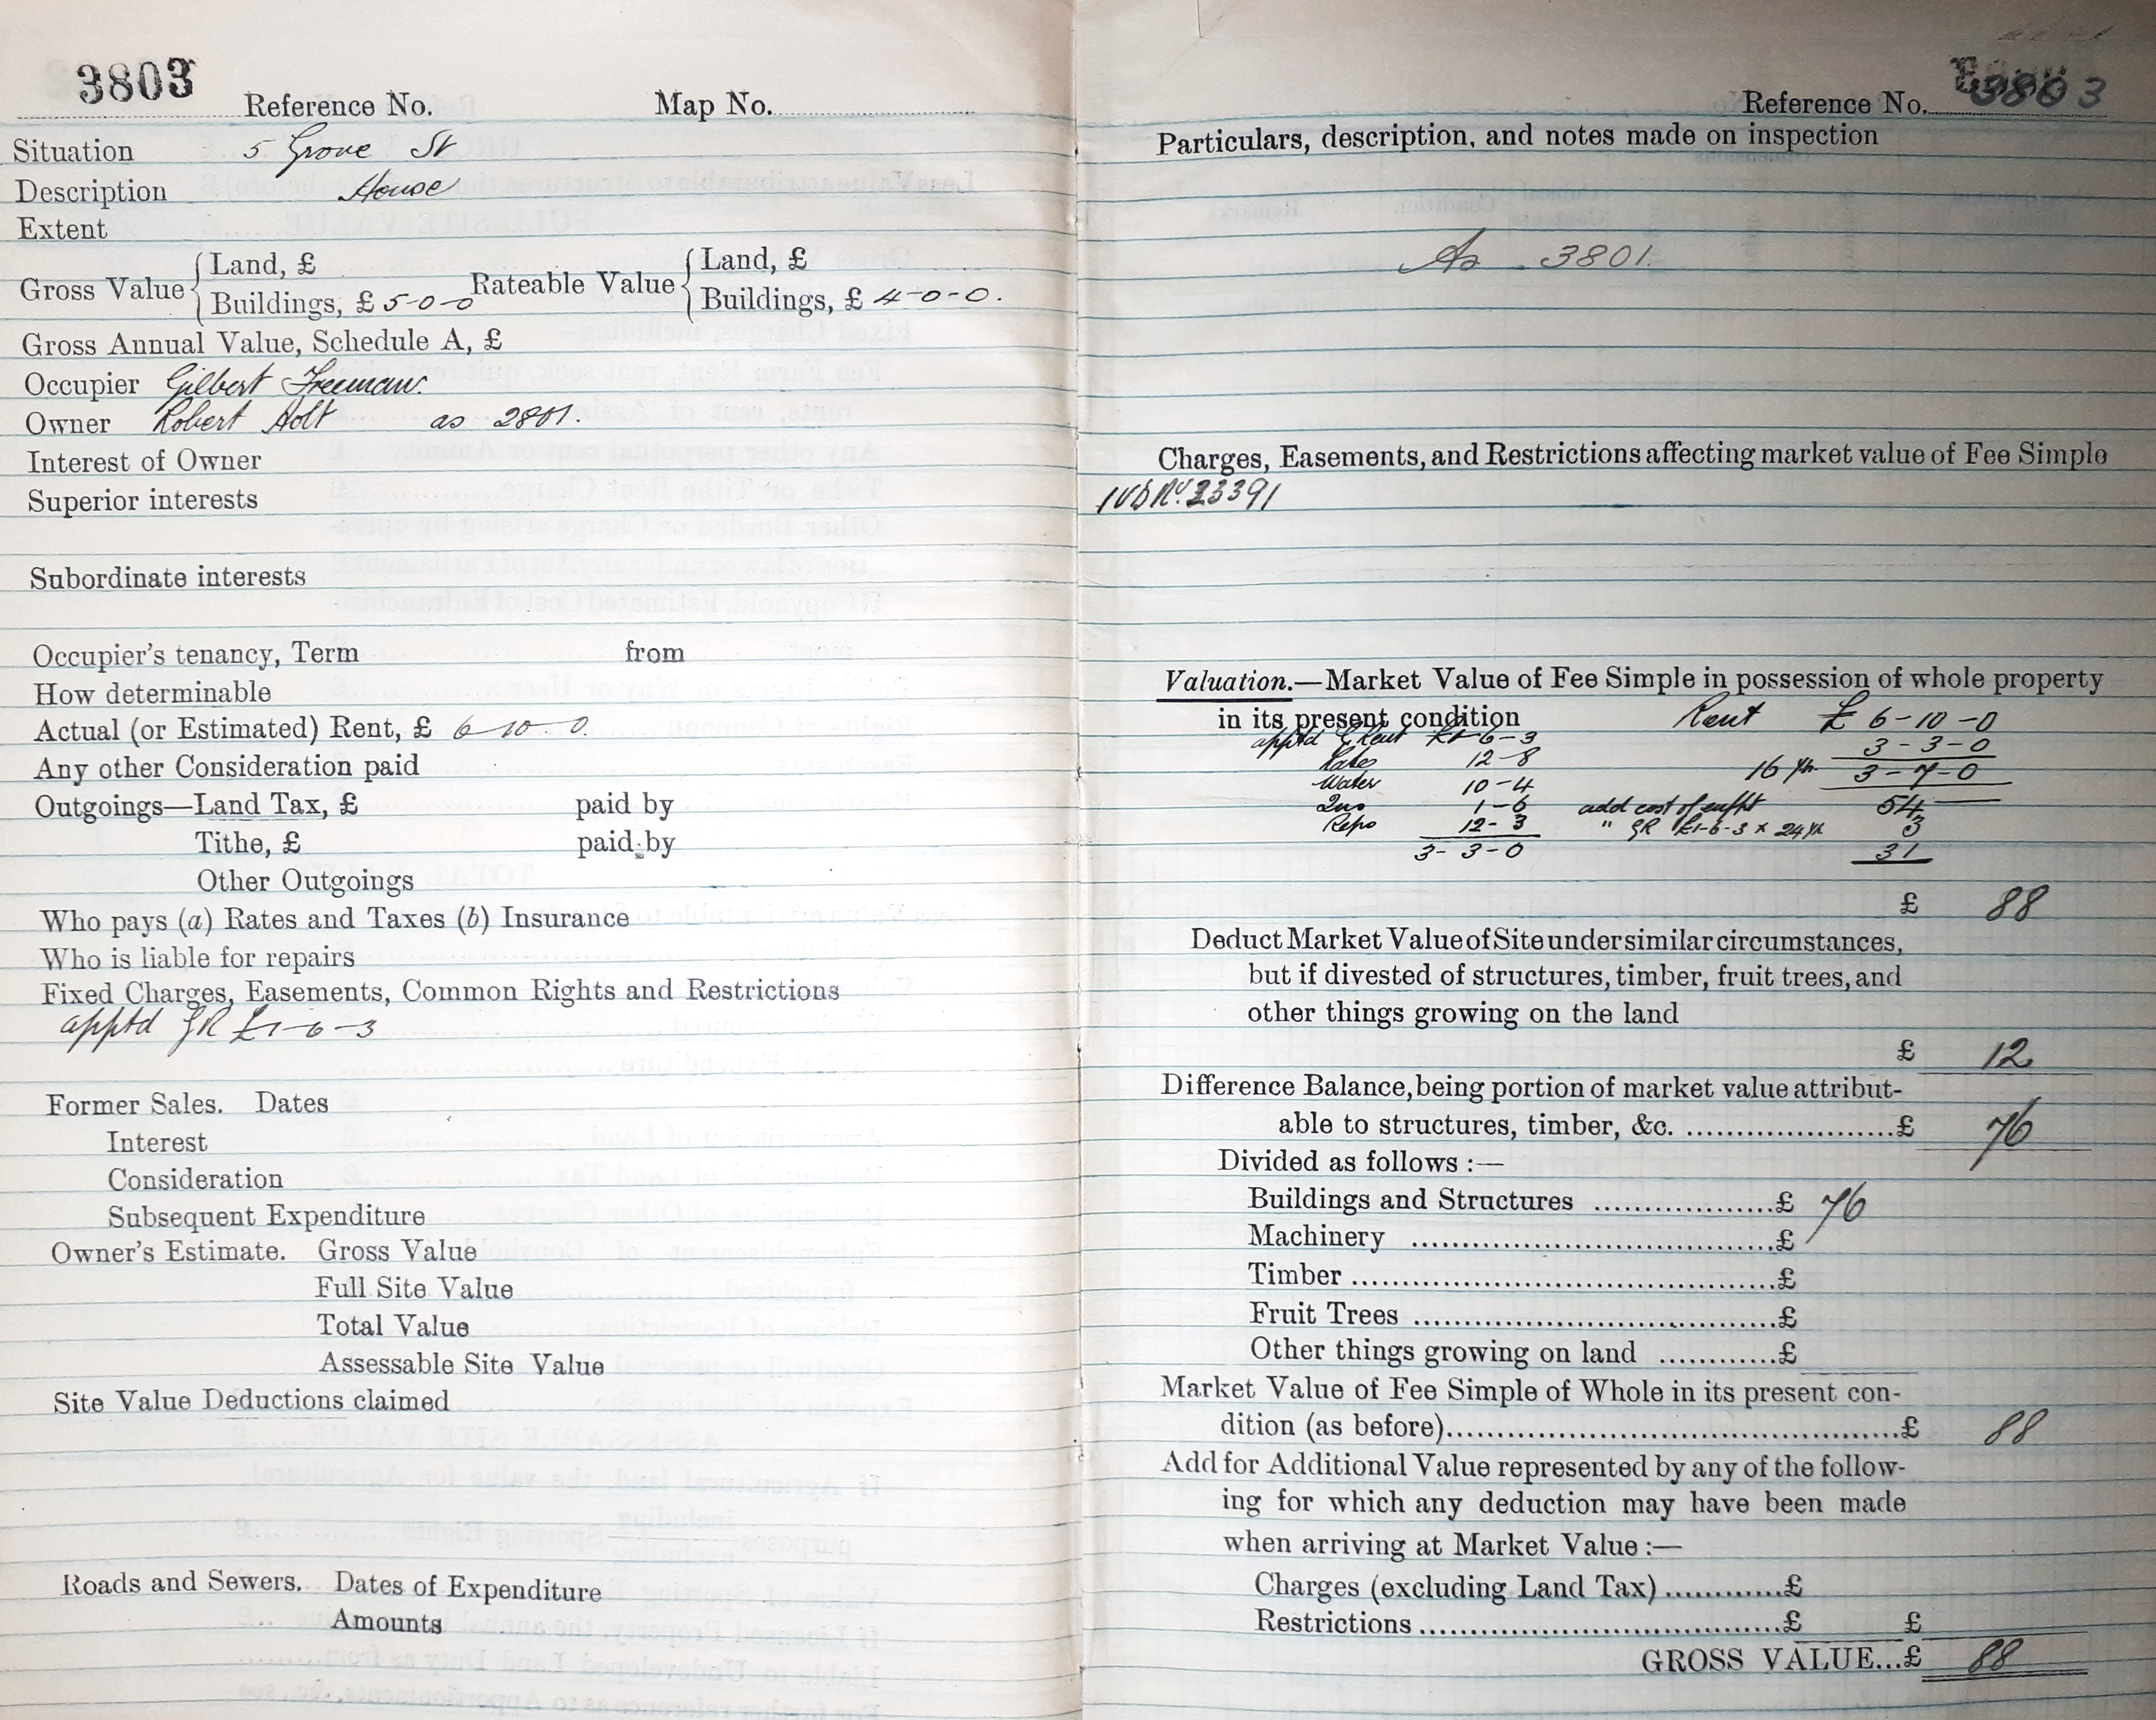 3803
Reference No. Map No.
Situation 5 Grove St
Description House
Extent
Gross Value { Land, £ Rateable Value { Land, £
Buildings, £ 5-0-0 Buildings, £ 4-0-0.
Gross Annual Value, Schedule A, £
Occupier Gilbert Freeman.
Owner Robert Holt as 2801.
Interest of Owner
Superior interests
Subordinate interests
Occupier's tenancy, Term from
How determinable
Actual (or Estimated) Rent, £ 6-10-0.
Any other Consideration paid
Outgoings—Land Tax, £ paid by
Tithe, £ paid by
Other Outgoings
Who pays (a) Rates and Taxes (b) Insurance
Who is liable for repairs
Fixed Charges, Easements, Common Rights and Restrictions
apptd GR £1-6-3
Former Sales. Dates
Interest
Consideration
Subsequent Expenditure
Owner's Estimate. Gross Value
Full Site Value
Total Value
Assessable Site Value
Site Value Deductions claimed
Roads and Sewers. Dates of Expenditure
Amounts
Reference No. 3803
Particulars, description, and notes made on inspection
As 3801.
Charges, Easements, and Restrictions affecting market value of Fee Simple
23391
Valuation.—Market Value of Fee Simple in possession of whole property
in its present condition Rent £ 6-10-0
apptd G Rent £1-6-3 3-3-0
Rates 12-8 16 yrs 3-7-0
Water 10-4
Ins 1-6 add cost of enfft 54
Reps 12-3 " GR £1-6-3 x 24 yrs 3
3-3-0 31
£ 88
Deduct Market Value of Site under similar circumstances,
but if divested of structures, timber, fruit trees, and
other things growing on the land
£ 12
Difference Balance, being portion of market value attribut-
able to structures, timber, &c. ......................£ 76
Divided as follows :—
Buildings and Structures ..................£ 76
Machinery ....................................£
Timber ..........................................£
Fruit Trees ....................................£
Other things growing on land ............£
Market Value of Fee Simple of Whole in its present con-
dition (as before).............................................£ 88
Add for Additional Value represented by any of the follow-
ing for which any deduction may have been made
when arriving at Market Value :—
Charges (excluding Land Tax)............£
Restrictions ....................................£ £
GROSS VALUE...£ 88